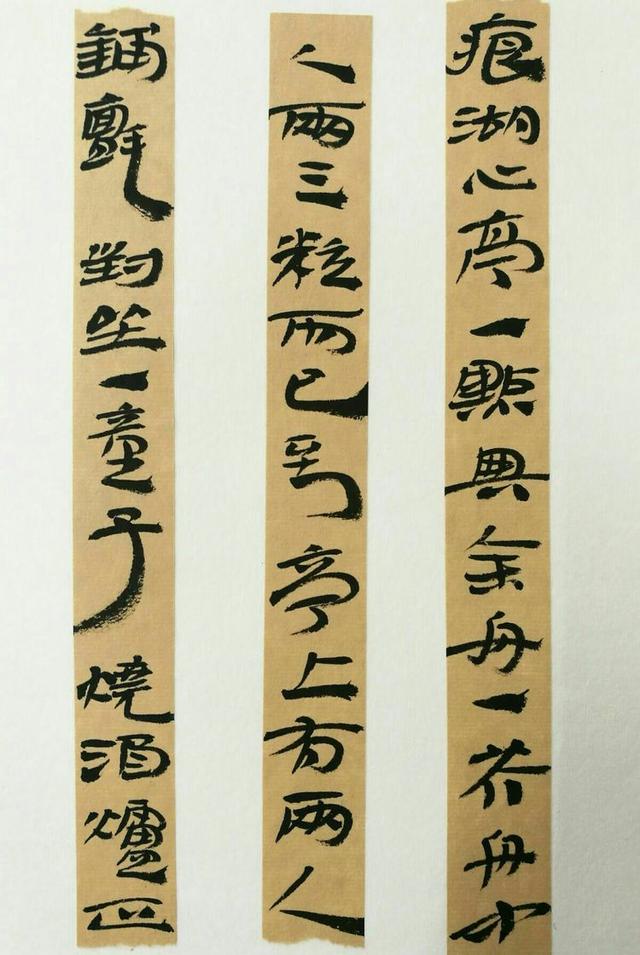 痕湖心亭一點與余舟一芥舟中
人兩三粒而已到亭上有兩人
鋪氈對坐一童子燒酒爐正